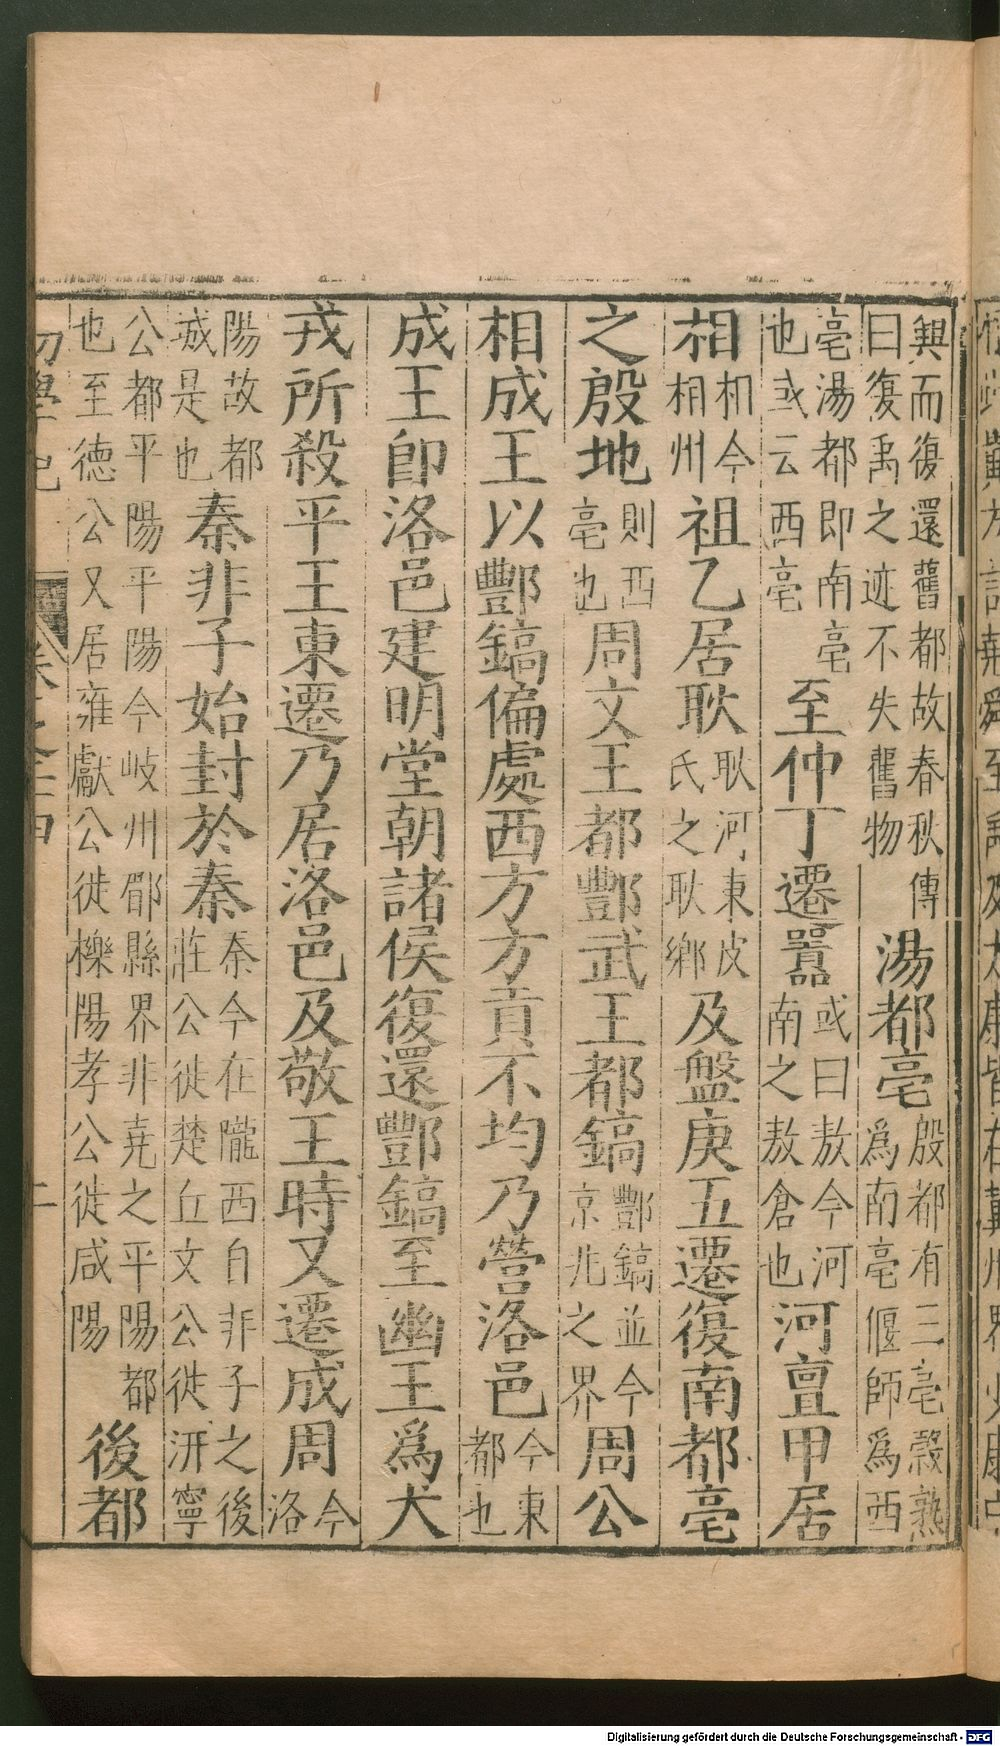 興而復還舊都故春秋傳
曰復禹之迹不失舊物
湯都亳
殷都有三亳穀熟
爲南亳偃師爲西
亳湯都即南亳
也或云西亳
至仲丁遷囂
或曰敖今河
南之敖倉也
河亶甲居
相
相今
相州
祖乙居耿
耿河東皮
氏之耿鄉
及盤庚五遷復南都亳
之殷地
則西
亳也
周文王都酆武王都鎬
酆鎬並今
京兆之界
周公
相成王以酆鎬偏處西方方貢不均乃營洛邑
今東
都也
成王即洛邑建明堂朝諸侯復還酆鎬至幽王爲犬
戎所殺平王東遷乃居洛邑及敬王時又遷成周
今
洛
陽故都
城是也
秦非子始封於秦
秦今在隴西自非子之後
莊公徙楚丘文公徙汧寧
公都平陽平陽今岐州郿縣界非堯之平陽都
也至德公又居雍獻公徙櫟陽孝公徙咸陽
後都
初學記
二
Digitalisierung gefördert durch die Deutsche Forschungsgemeinschaft - DFG